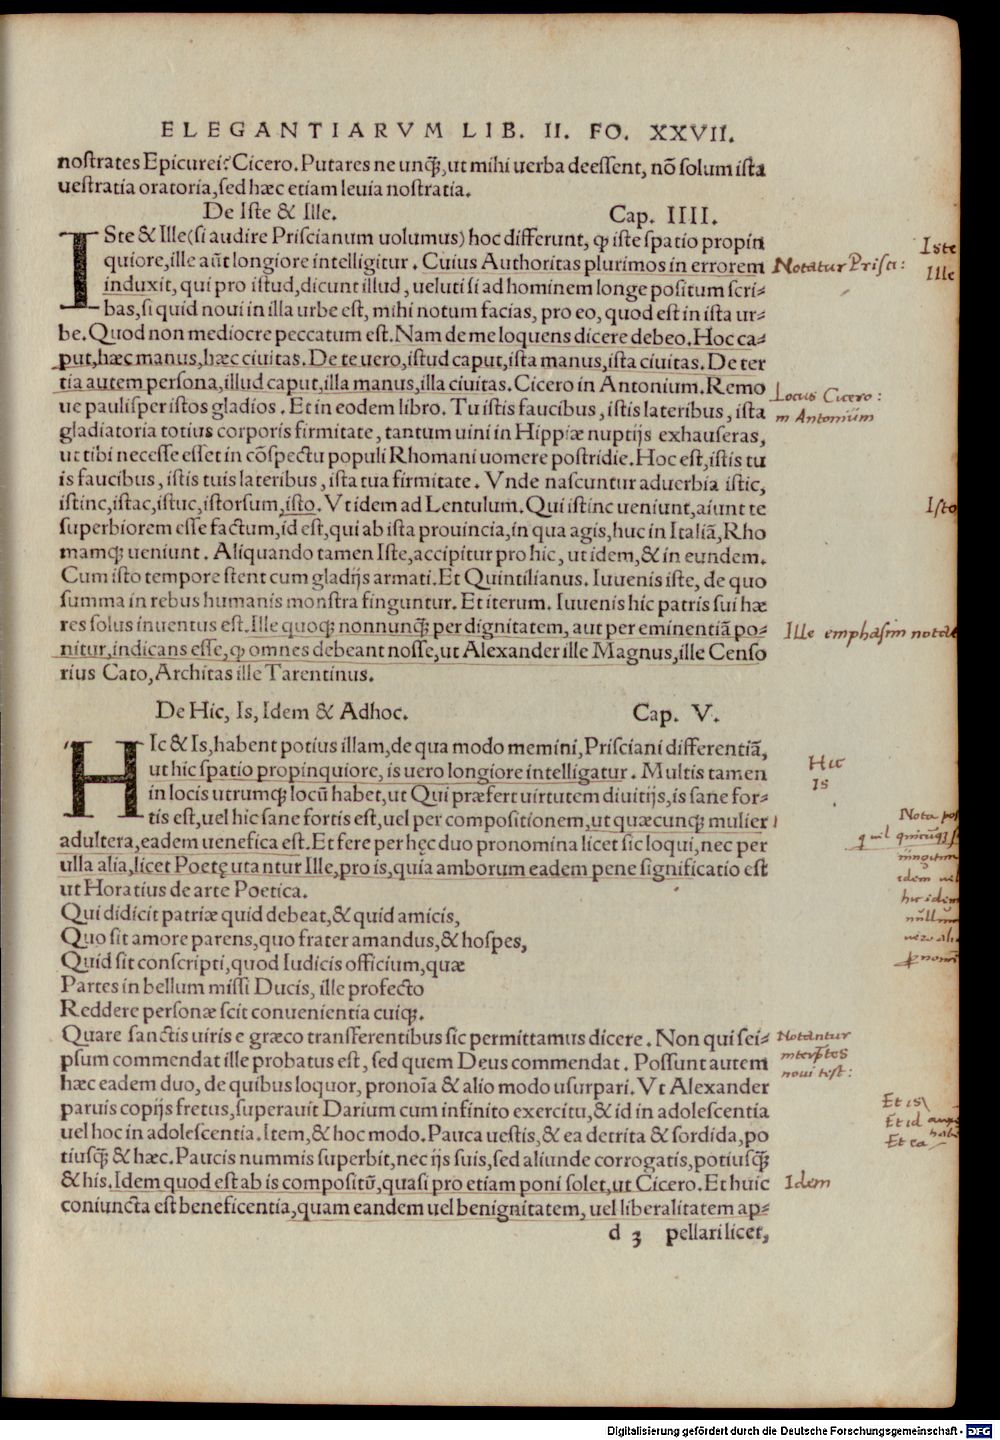 ELEGANTIARVM LIB. II. FO. XXVII.
nostrates Epicurei? Cicero. Putares ne unq̃, ut mihi uerba deessent, nõ solum ista
uestratia oratoria, sed hæc etiam leuia nostratia.
De Iste & Ille. Cap. IIII.
ISte & Ille (si audire Priscianum uolumus) hoc differunt, ꝙ iste spatio propin
quiore, ille aũt longiore intelligitur. Cuius Authoritas plurimos in errorem
induxit, qui pro istud, dicunt illud, ueluti si ad hominem longe positum scri-
bas, si quid noui in illa urbe est, mihi notum facias, pro eo, quod est in ista ur-
be. Quod non mediocre peccatum est. Nam de me loquens dicere debeo. Hoc ca-
put, hæc manus, hæc ciuitas. De te uero, istud caput, ista manus, ista ciuitas. De ter
tia autem persona, illud caput, illa manus, illa ciuitas. Cicero in Antonium. Remo
ue paulisper istos gladios. Et in eodem libro. Tu istis faucibus, istis lateribus, ista
gladiatoria totius corporis firmitate, tantum uini in Hippiæ nuptijs exhauseras,
ut tibi necesse esset in cõspectu populi Rhomani uomere postridie. Hoc est, istis tu
is faucibus, istis tuis lateribus, ista tua firmitate. Vnde nascuntur aduerbia istic,
istinc, istac, istuc, istorsum, isto. Vt idem ad Lentulum. Qui istinc ueniunt, aiunt te
superbiorem esse factum, id est, qui ab ista prouincia, in qua agis, huc in Italiã, Rho
mamq; ueniunt. Aliquando tamen Iste, accipitur pro hic, ut idem, & in eundem.
Cum isto tempore stent cum gladijs armati. Et Quintilianus. Iuuenis iste, de quo
summa in rebus humanis monstra finguntur. Et iterum. Iuuenis hic patris sui hæ
res solus inuentus est. Ille quoq; nonnunq̃ per dignitatem, aut per eminentiã po-
nitur, indicans esse, ꝙ omnes debeant nosse, ut Alexander ille Magnus, ille Censo
rius Cato, Architas ille Tarentinus.
De Hic, Is, Idem & Adhoc. Cap. V.
HIc & Is, habent potius illam, de qua modo memini, Prisciani differentiã,
ut hic spatio propinquiore, is uero longiore intelligatur. Multis tamen
in locis utrumq; locũ habet, ut Qui præfert uirtutem diuitijs, is sane for-
tis est, uel hic sane fortis est, uel per compositionem, ut quæcunq; mulier
adultera, eadem uenefica est. Et fere per hęc duo pronomina licet sic loqui, nec per
ulla alia, licet Poetę utantur Ille, pro is, quia amborum eadem pene significatio est
ut Horatius de arte Poetica.
Qui didicit patriæ quid debeat, & quid amicis,
Quo sit amore parens, quo frater amandus, & hospes,
Quid sit conscripti, quod Iudicis officium, quæ
Partes in bellum missi Ducis, ille profecto
Reddere personæ scit conuenientia cuiq;.
Quare sanctis uiris e græco transferentibus sic permittamus dicere. Non qui sei-
psum commendat ille probatus est, sed quem Deus commendat. Possunt autem
hæc eadem duo, de quibus loquor, pronoĩa & alio modo usurpari. Vt Alexander
paruis copijs fretus, superauit Darium cum infinito exercitu, & id in adolescentia
uel hoc in adolescentia. Item, & hoc modo. Pauca uestis, & ea detrita & sordida, po
tiusq̃ & hæc. Paucis nummis superbit, nec ijs suis, sed aliunde corrogatis, potiusq̃
& his. Idem quod est ab is compositũ, quasi pro etiam poni solet, ut Cicero. Et huic
coniuncta est beneficentia, quam eandem uel benignitatem, uel liberalitatem ap-
d 3 pellari licet,
Iste
Ille
Notatur Prisci:
Locus Cicero:
in Antonium
Isto
Ille emphasim
Hic
Is
Nota
idem
hic idem
Notantur
noui test:
Et is
Et id
Et ea
Idem
Digitalisierung gefördert durch die Deutsche Forschungsgemeinschaft - DFG